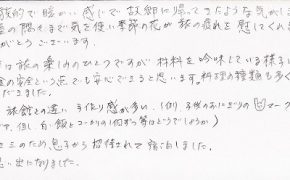 族的で暖かい感じで故郷に帰ってきたような気がし
の隅々まで気を使い季節の花が旅の疲れを慰してくれま
がとうございます。
は旅の楽しみのひとつですが材料を吟味している様で
の安全という点でも安心できると思います。料理の種類も多く
だきました。
旅館との違い 手作り感が多い、(例) 子供のおにぎりの マーク
、但し、白い飯と の1個ずつ等はどうでしょうか)
このため息子から招待されて宿泊しました。
思い出になりました。